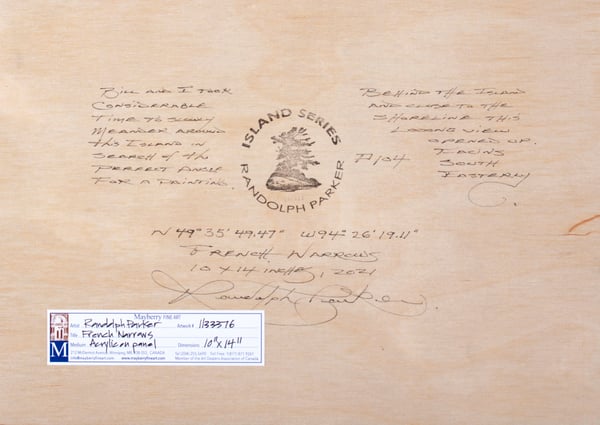 Bill and I took
considerable
time to slowly
meander around
this island in
search of the
perfect angle
for a painting.
ISLAND SERIES
RANDOLPH PARKER
Behind the island
and close to the
shoreline this
view
opened up.
Facing
South
Easterly
P104
N 49° 35' 49.47" W 94° 26' 19.11"
French Narrows
10 x 14 inches, 2021
Randolph Parker.
Mayberry FINE ART
Artist Randolph Parker Artwork # 1133576
Title French Narrows
Medium Acrylic on panel Dimensions 10" x 14"
212 McDermot Avenue, Winnipeg MB, CANADA
info@mayberryfineart.com www.mayberryfineart.com
Member of the Art Dealers Association of Canada
M